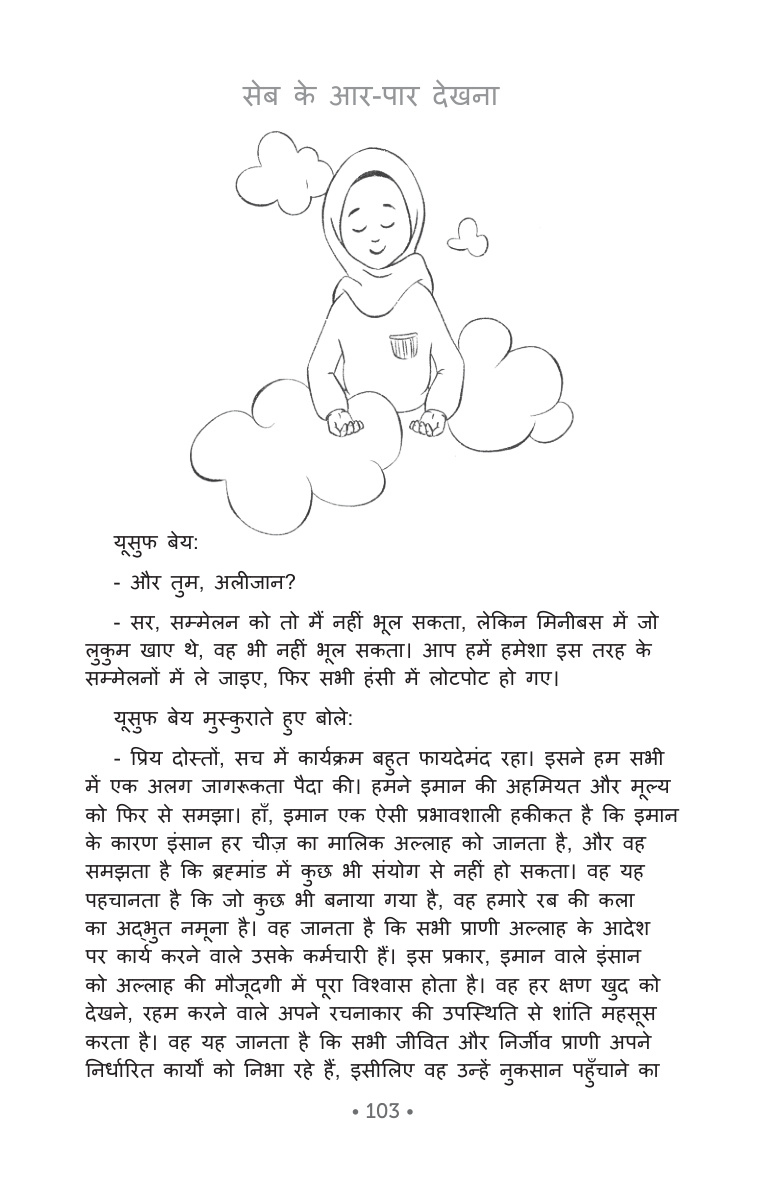 सेब के आर-पार देखना
यूसुफ बेय:
- और तुम, अलीजान?
- सर, सम्मेलन को तो मैं नहीं भूल सकता, लेकिन मिनीबस में जो
लुकुम खाए थे, वह भी नहीं भूल सकता। आप हमें हमेशा इस तरह के
सम्मेलनों में ले जाइए, फिर सभी हंसी में लोटपोट हो गए।
यूसुफ बेय मुस्कुराते हुए बोले:
- प्रिय दोस्तों, सच में कार्यक्रम बहुत फायदेमंद रहा। इसने हम सभी
में एक अलग जागरूकता पैदा की। हमने इमान की अहमियत और मूल्य
को फिर से समझा। हाँ, इमान एक ऐसी प्रभावशाली हकीकत है कि इमान
के कारण इंसान हर चीज़ का मालिक अल्लाह को जानता है, और वह
समझता है कि ब्रह्मांड में कुछ भी संयोग से नहीं हो सकता। वह यह
पहचानता है कि जो कुछ भी बनाया गया है, वह हमारे रब की कला
का अद्भुत नमूना है। वह जानता है कि सभी प्राणी अल्लाह के आदेश
पर कार्य करने वाले उसके कर्मचारी हैं। इस प्रकार, इमान वाले इंसान
को अल्लाह की मौजूदगी में पूरा विश्वास होता है। वह हर क्षण खुद को
देखने, रहम करने वाले अपने रचनाकार की उपस्थिति से शांति महसूस
करता है। वह यह जानता है कि सभी जीवित और निर्जीव प्राणी अपने
निर्धारित कार्यों को निभा रहे हैं, इसीलिए वह उन्हें नुकसान पहुँचाने का
• 103 •